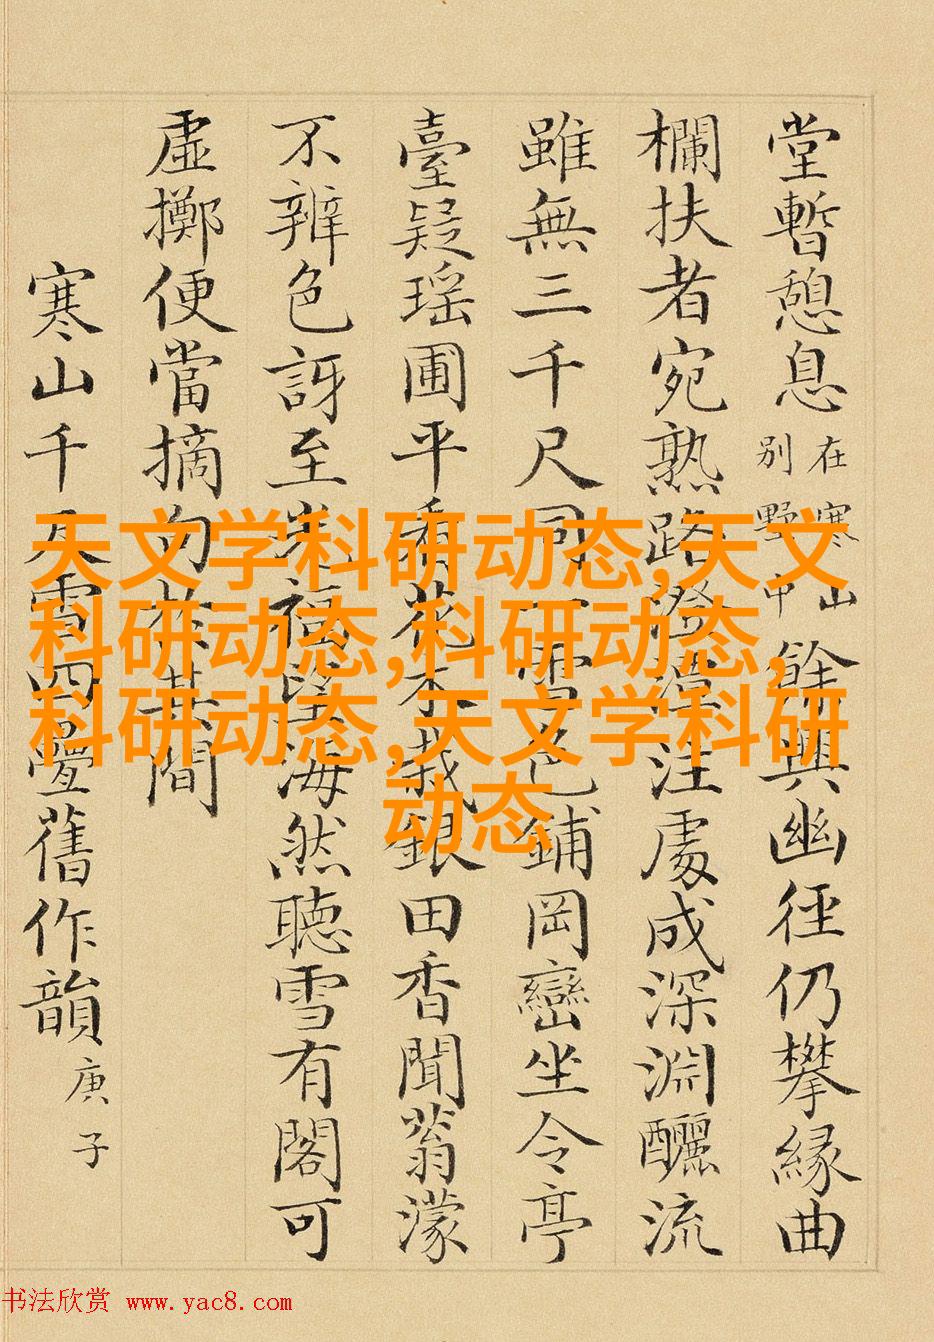 堂暫憩息在寒山別野中餘興幽徑仍攀緣曲
欄扶者宛熟路澄潭注處成深淵釃流
雖無三千尺同一雪色鋪岡巒坐令亭
臺疑瑶圃平看花木栽銀田香聞蓊濛
不辨色訝至海然聽雪有閣可
虛擲便當摘句於其間
寒山千尺雪四疊舊作韻庚子
天文学科研动态,天文
科研动态,科研动态,
科研动态,天文学科研
动态
书法欣赏 www.yac8.com